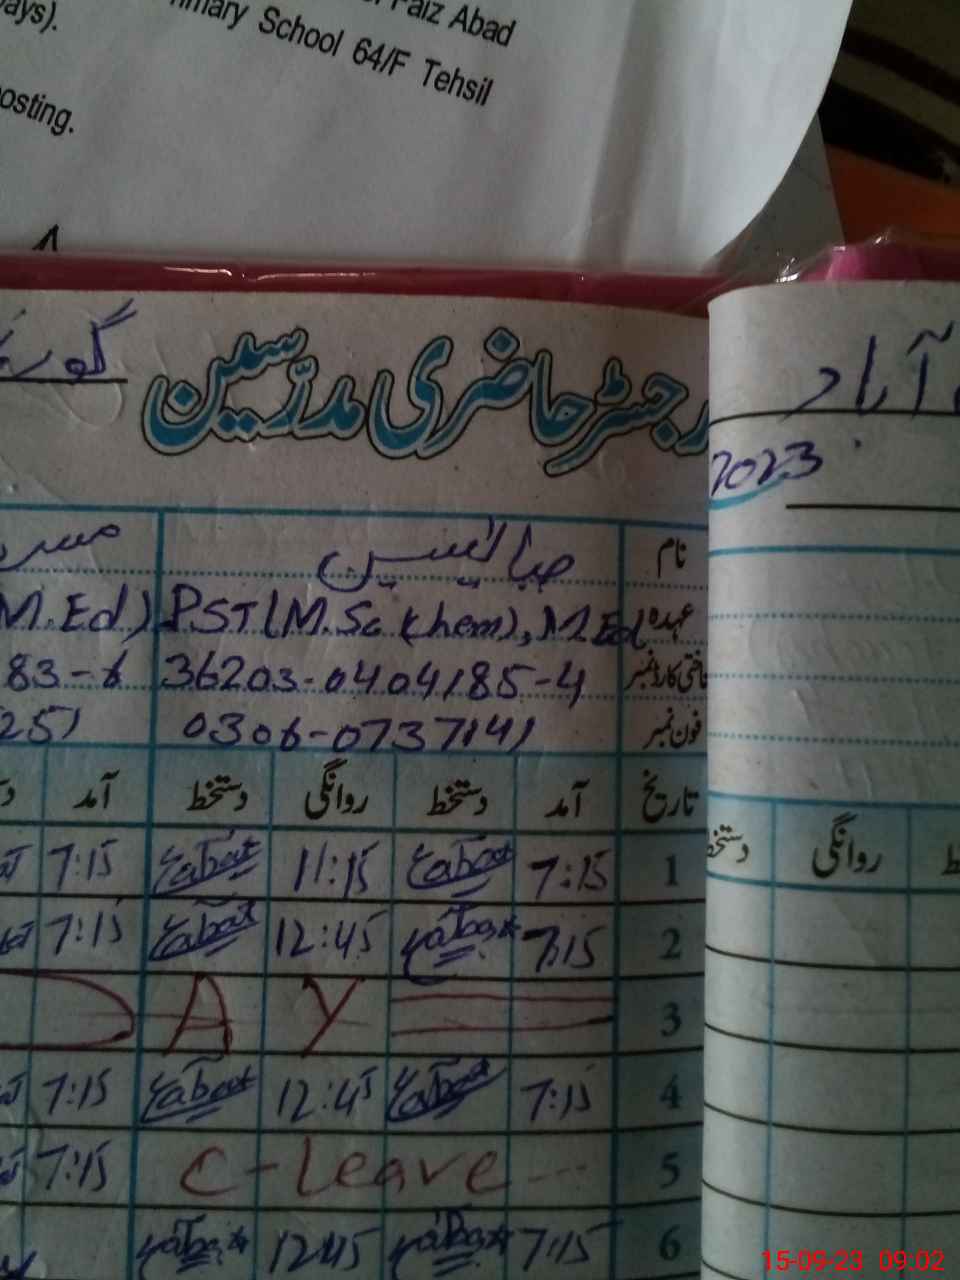 Faiz Abad
ays).
mary School 64/F Tehsil
osting.
گور
رجسٹر حاضری مدرّسین
آباد
2023
نام
M.Ed) PST(M.Sc (chem), M.Ed عہدہ
83-6 36203-0404185-4
251 0306-0737141 فون نمبر
تاریخ آمد دستخط روانگی دستخط آمد
دستخط روانگی
1 7:15 11:15 7:15
2 7:15 12:45 7:15
3 DAY
4 7:15 12:45 7:15
5 C-Leave 7:15
6 7:15 12:45
15-09-23 09:02